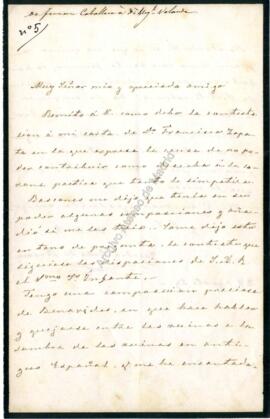 De Fernan Caballero à Dn Migl. Velarde
nº 5
Muy Señor mio y querido amigo
Remito á V. como debo la contesta
cion á mi carta de Dn Francisco Zapa
ta en la que espresa la causa de no po
der contribuir como desea á la co
rona poetica que tanto le simpatiza.
Bascones me dijo que tenia en su
poder algunas composiciones y aña
dió si me las traia. Como dijo esto
en tono de pregunta, le contesté que
siguiese las disposiciones de S. A. R
el Srmo Sr Infante.
Tengo una composicion preciosa
de Benavides, en que hace hablar
y quejarse entre las encinas a la
sombra de las encinas en anti
guo Español, q me ha encantado.
Archivo Manuel de Marcio